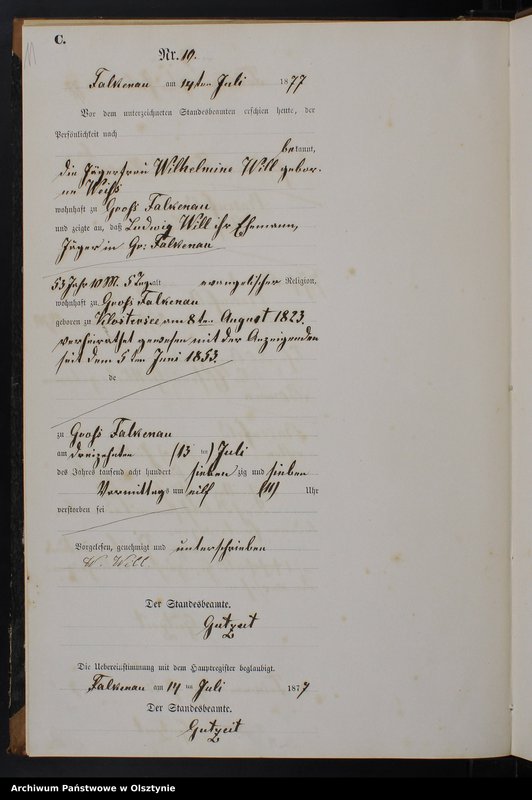 C.
11
Nr. 10.
Falkenau am 14ten Juli 1877
Vor dem unterzeichneten Standesbeamten erschien heute, der
Persönlichkeit nach
bekannt,
die Jägerfrau Wilhelmine Will gebor-
ne Weiß
wohnhaft zu Groß Falkenau
und zeigte an, daß Ludwig Will ihr Ehemann,
Jäger in Gr: Falkenau
53 Jahr 10 M. 5 Tag alt evangelischer Religion,
wohnhaft zu Groß Falkenau
geboren zu Klostersee am 8ten August 1823.
verheirathet gewesen mit der Anzeigenden
seit dem 5ten Juni 1853.
de
zu Groß Falkenau
am dreizehnten (13 ten) Juli
des Jahres tausend acht hundert sieben zig und sieben
Vormittags um eilf (11) Uhr
verstorben sei
Vorgelesen, genehmigt und unterschrieben
W. Will.
Der Standesbeamte.
Gutzeit
Die Uebereinstimmung mit dem Hauptregister beglaubigt.
Falkenau am 14 ten Juli 1877
Der Standesbeamte.
Gutzeit
Archiwum Państwowe w Olsztynie